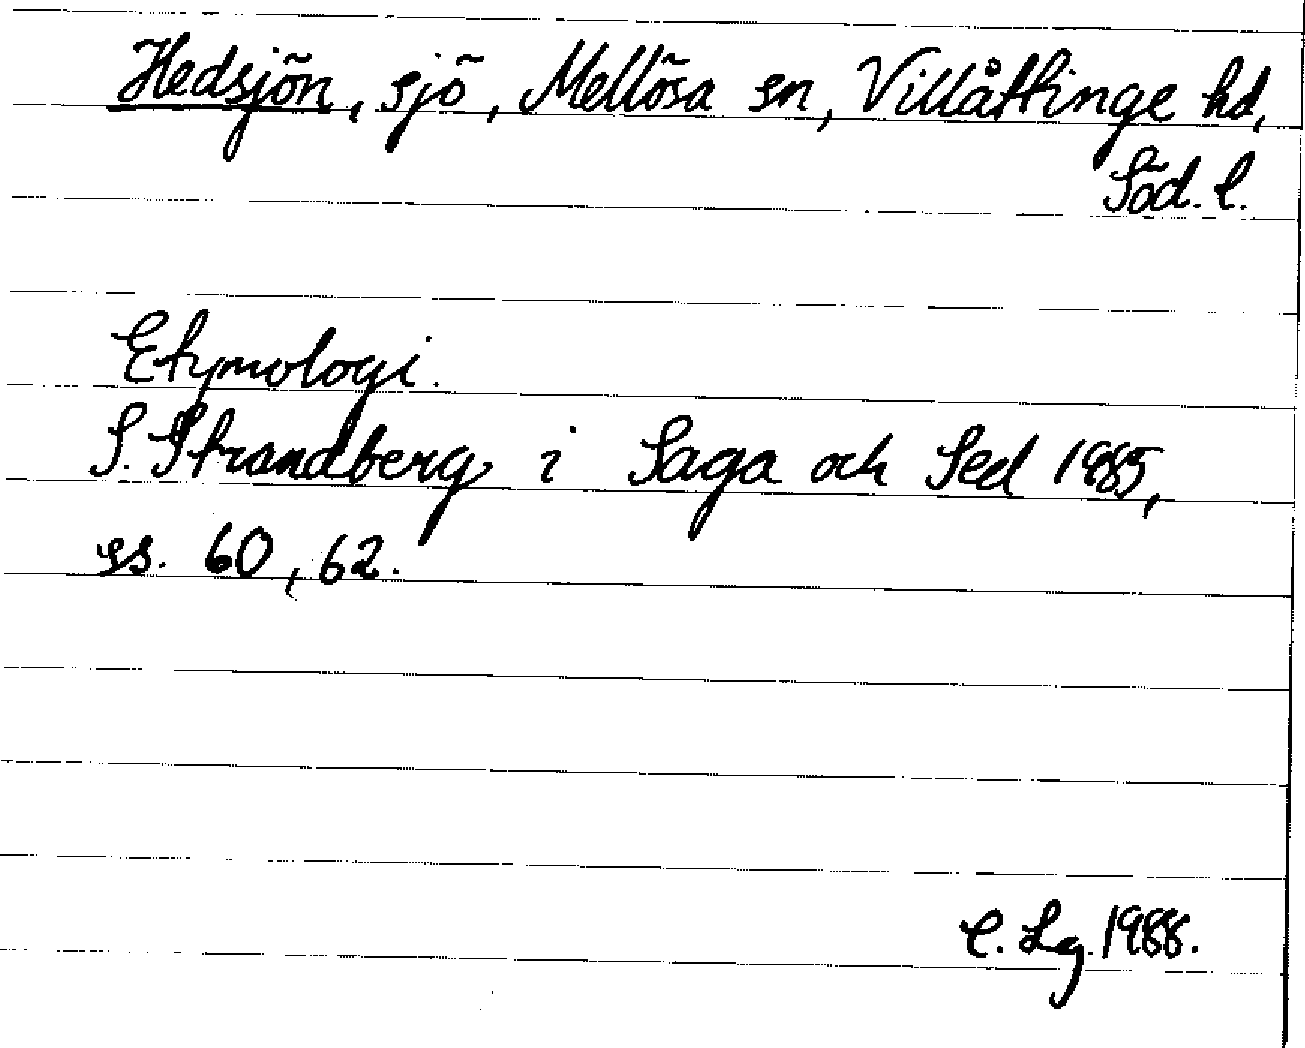 Hedsjön, sjö, Mellösa sn, Villåttinge hd,
Söd. l.
Etymologi.
S. Strandberg i Saga och Sed 1985,
ss. 60, 62.
C. Lg. 1988.